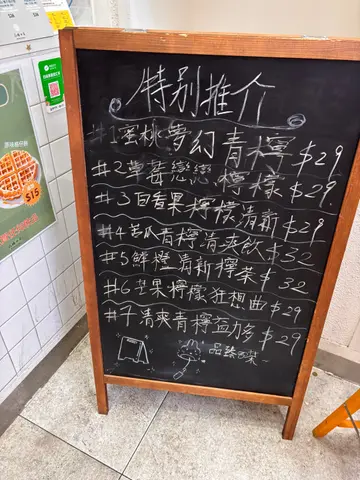 特別推介
#1蜜桃夢幻青檸 $29
#2草莓戀戀檸檬 $29
#3百香果檸檬清新 $29
#4苦瓜青檸清爽飲 $32
#5鮮橙清新檸茶 $32
#6芒果檸檬狂想曲 $29
#7清爽青檸益力多 $29
$15